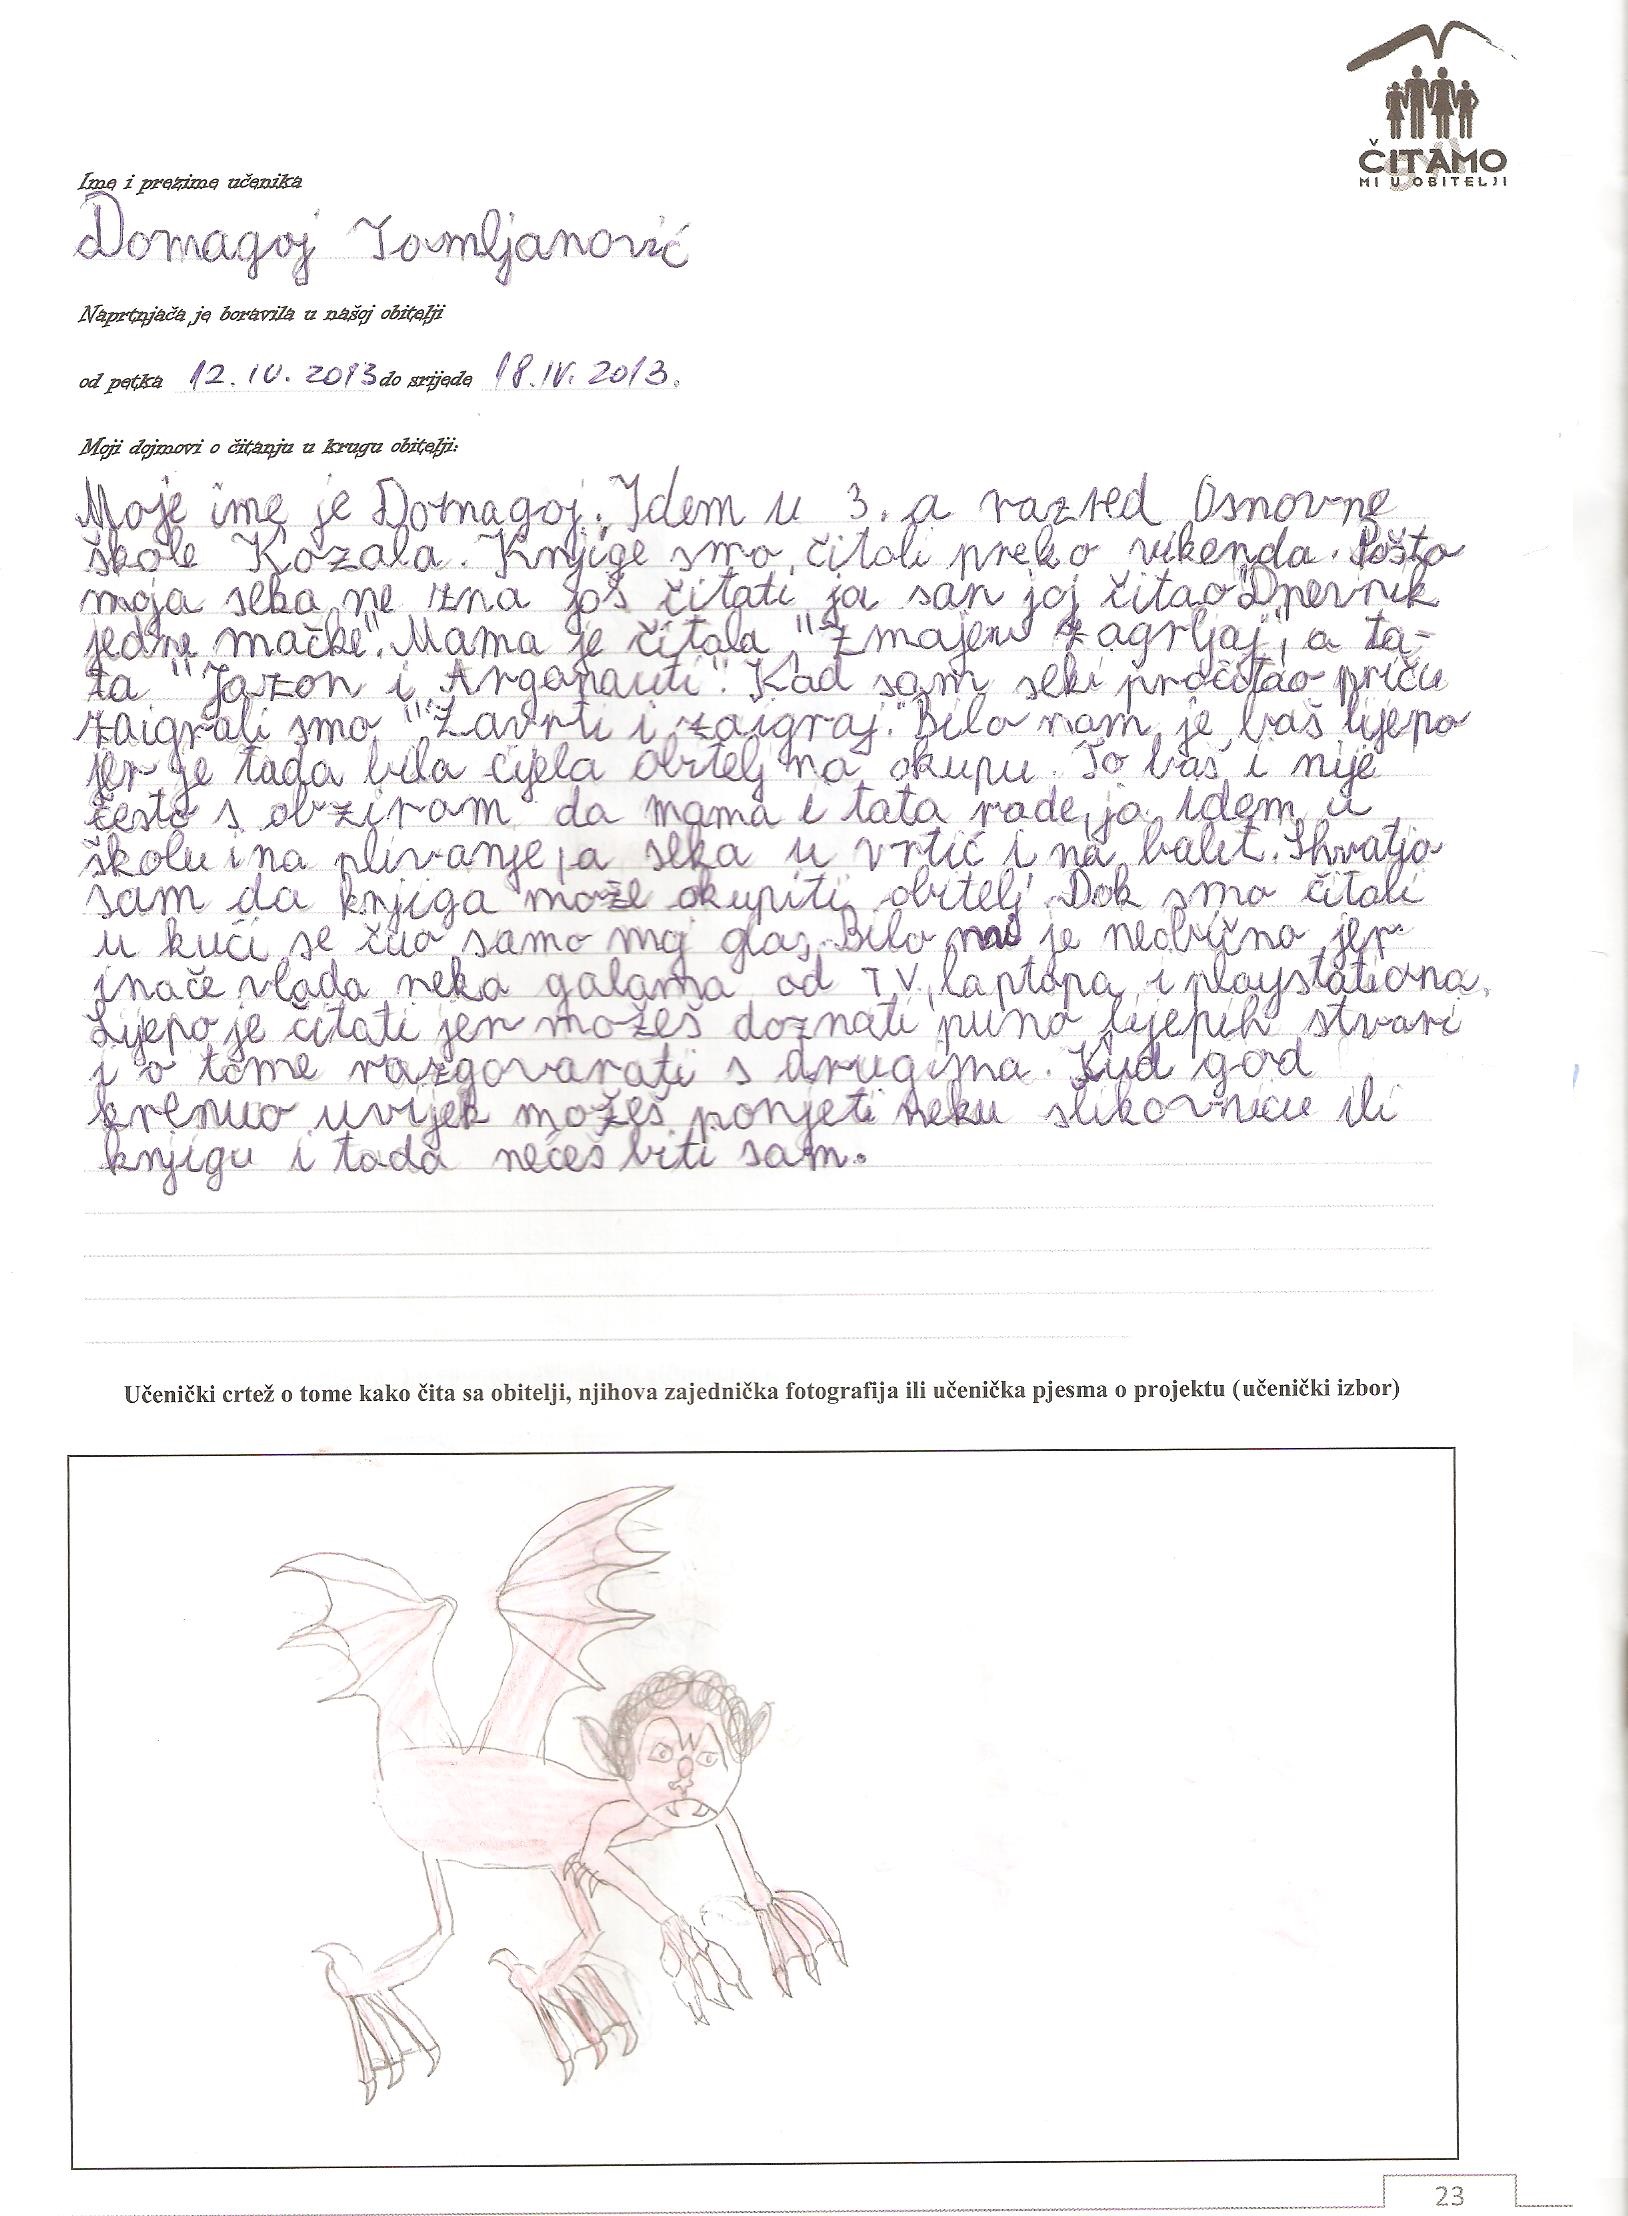 ČITAMO
MI U OBITELJI
Ime i prezime učenika
Domagoj Tomljanović
Naprtnjača je boravila u našoj obitelji
od petka 12. IV. 2013 do srijede 18. IV. 2013.
Moji dojmovi o čitanju u krugu obitelji:
Moje ime je Domagoj. Idem u 3. a razred Osnovne
škole Kozala. Knjige smo čitali preko vikenda. Pošto
moja seka ne zna još čitati ja san joj čitao "Dnevnik
jedne mačke". Mama je čitala "Zmajev zagrljaj", a ta-
ta "Jazon i Argonauti". Kad sam seki pročitao priču
zaigrali smo "Zavrti i zaigraj." Bilo nam je baš lijepo
jer je tada bila cijela obitelj na okupu. To baš i nije
često s obzirom da mama i tata rade, ja idem u
školu i na plivanje, a seka u vrtić i na balet. Shvatio
sam da knjiga može okupiti obitelj. Dok smo čitali
u kući se čuo samo moj glas. Bilo mi je neobično jer
inače vlada neka galama od TV, laptopa i playstationa.
Lijepo je čitati jer možeš doznati puno lijepih stvari
i o tome razgovarati s drugima. Kud god
krenuo uvijek možeš ponjeti neku slikovnicu ili
knjigu i tada nećeš biti sam.
Učenički crtež o tome kako čita sa obitelji, njihova zajednička fotografija ili učenička pjesma o projektu (učenički izbor)
23